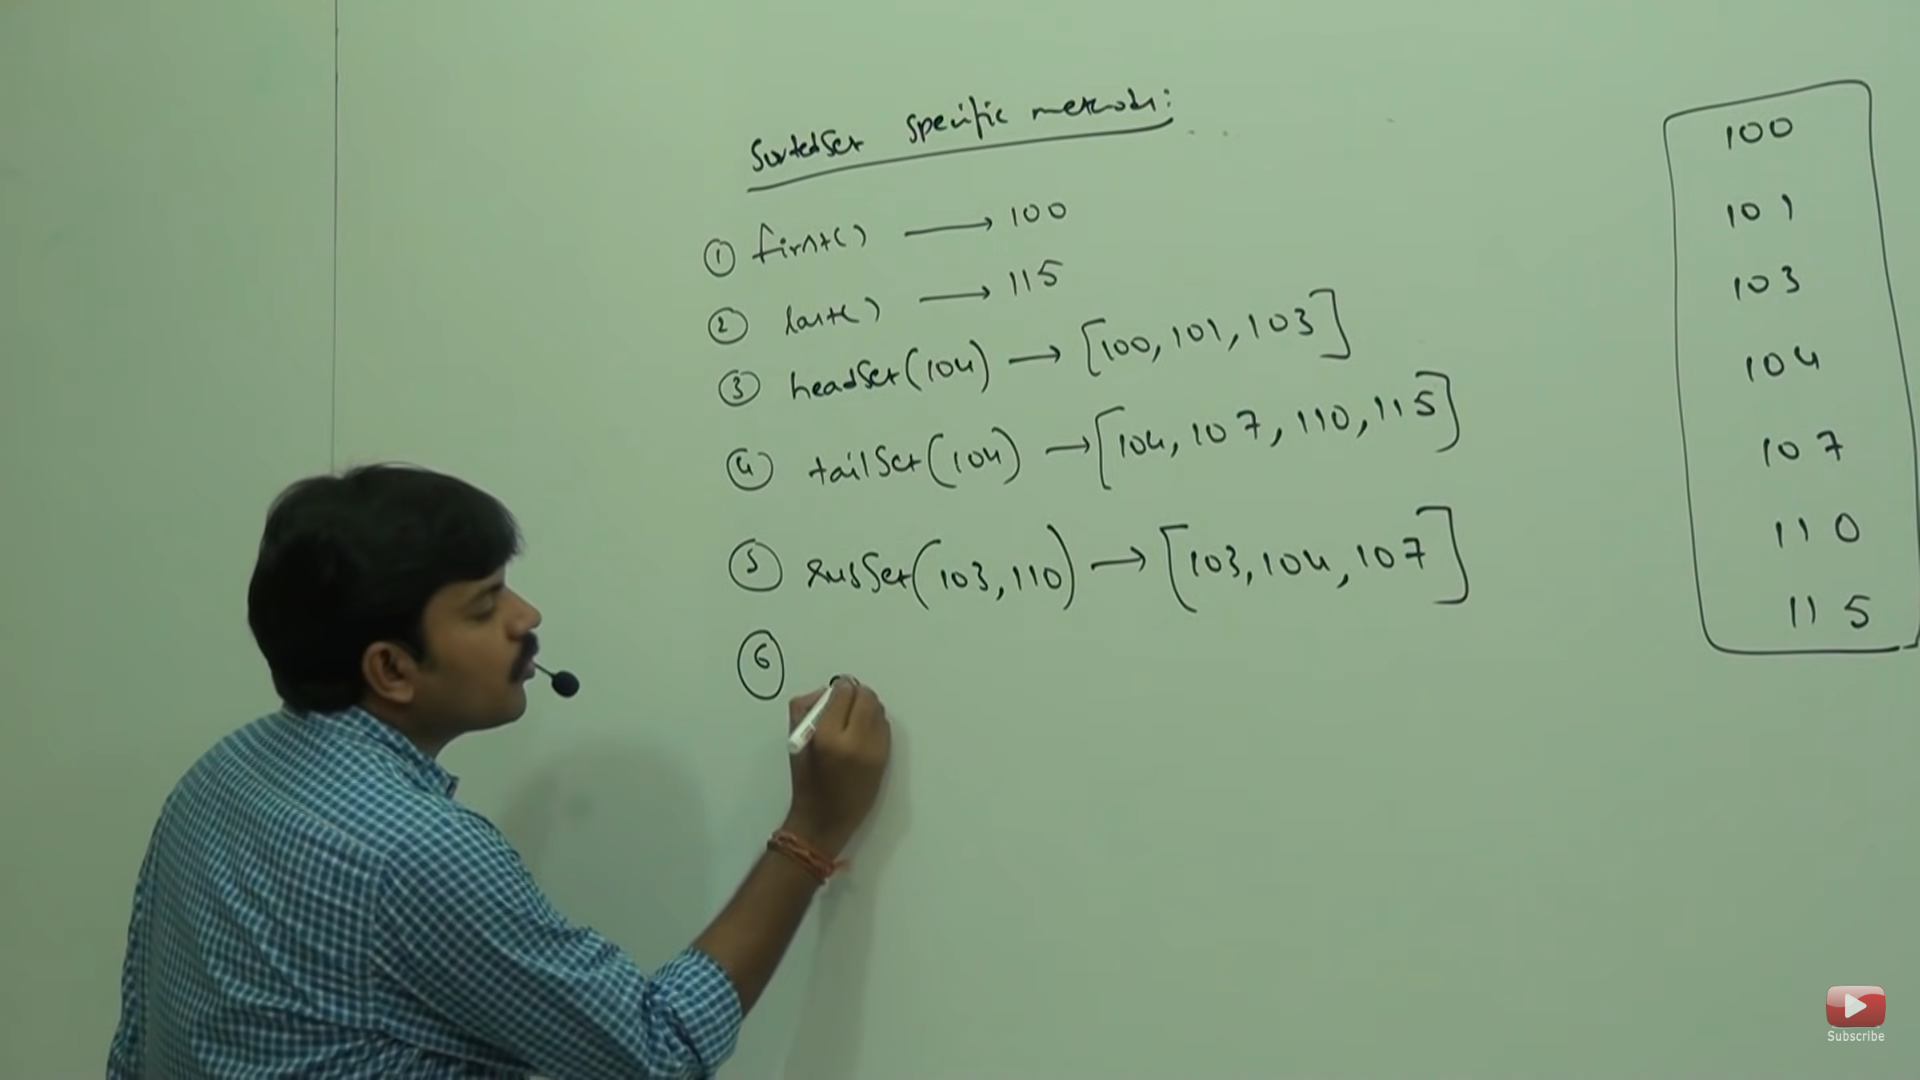 SortedSet specific methods:
① first() → 100
② last() → 115
③ headSet(104) → [100, 101, 103]
④ tailSet(104) → [104, 107, 110, 115]
⑤ subSet(103, 110) → [103, 104, 107]
⑥
100
101
103
104
107
110
115
Subscribe